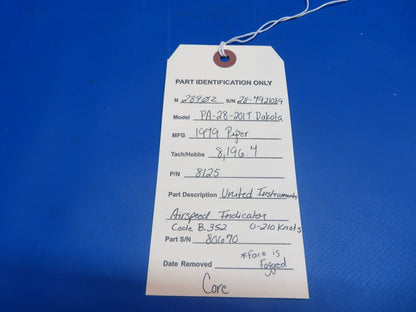 PART IDENTIFICATION ONLY
N 2890Z S/N 28-7921089
Model PA-28-201T Dakota
MFG 1979 Piper
Tach/Hobbs 8,196.4
P/N 8125
Part Description United Instruments
Airspeed Indicator
Code B.352 0-210 Knots
Part S/N 80670
*Face is
Date Removed Fogged
Core